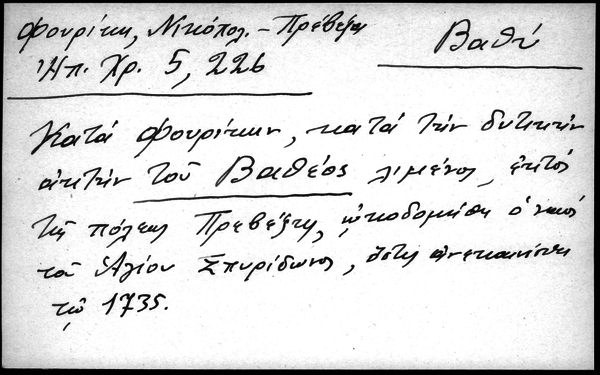 Φουρίκη, Νικόπολ. – Πρέβεζα
Ἠπ. Χρ. 5, 226
Βαθύ
Κατὰ Φουρίκην, κατὰ τὴν δυτικὴν
ἀκτὴν τοῦ Βαθέος λιμένος, ἐκτὸς
τῆς πόλεως Πρεβέζης, ᾠκοδομήθη ὁ ναὸς
τοῦ Ἁγίου Σπυρίδωνος, ὅστις ἀνεκαινίσθη
τῷ 1735.